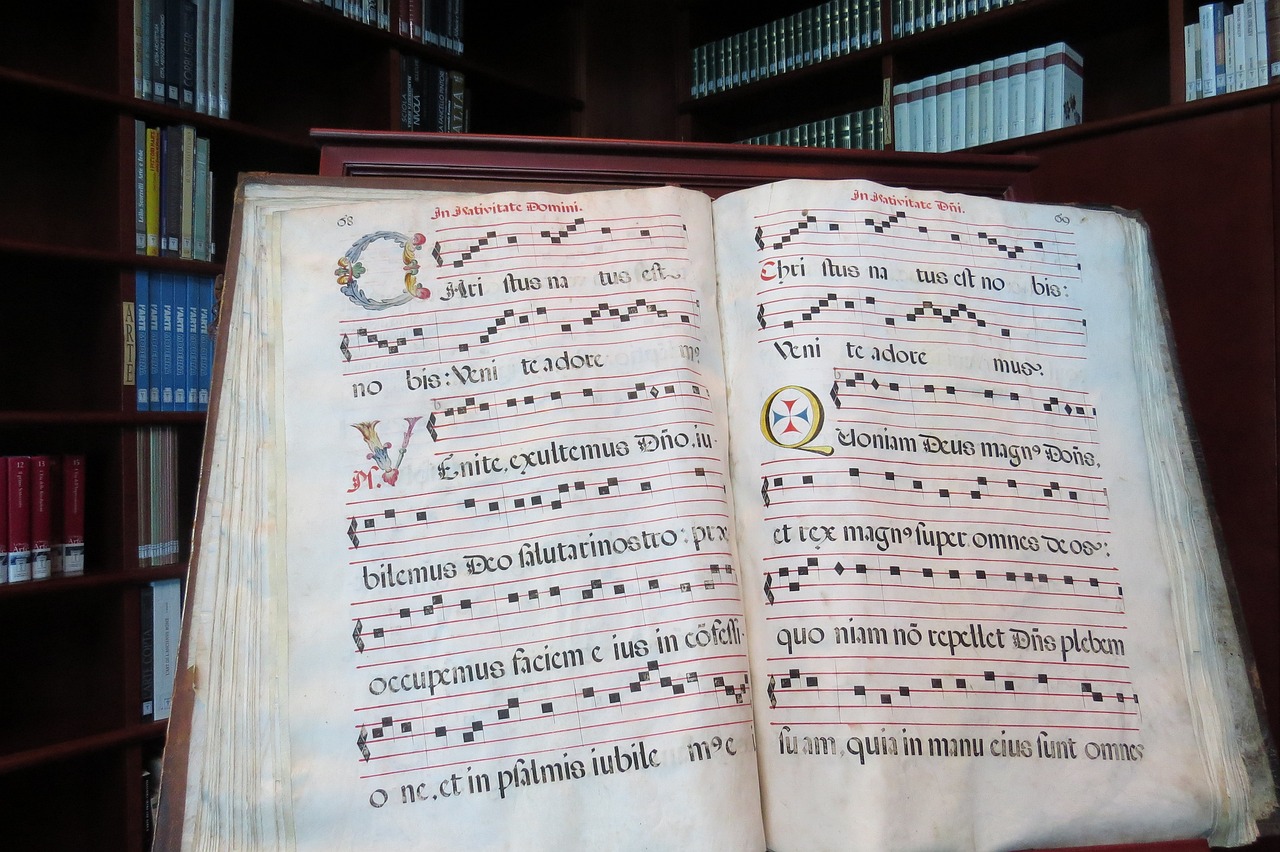 68
In Nativitate Domini.
CHri stus na tus est
no bis: Veni te adore m9
Ps. VEnite, exultemus Dño, iu-
bilemus Deo salutari nostro: præ
occupemus faciem e ius in cõfessi-
o ne, et in psalmis iubile m9 e
69
In Nativitate Dñi.
Chri stus na tus est no bis:
Veni te adore mus.
QUoniam Deus magn9 Doñs,
et rex magn9 super omnes deos:
quo niam nõ repellet Dñs plebem
suam, quia in manu eius sunt omnes
ARTE
L'ARTE
L'ARTE
L'ARTE
L'ARTE
L'ARTE